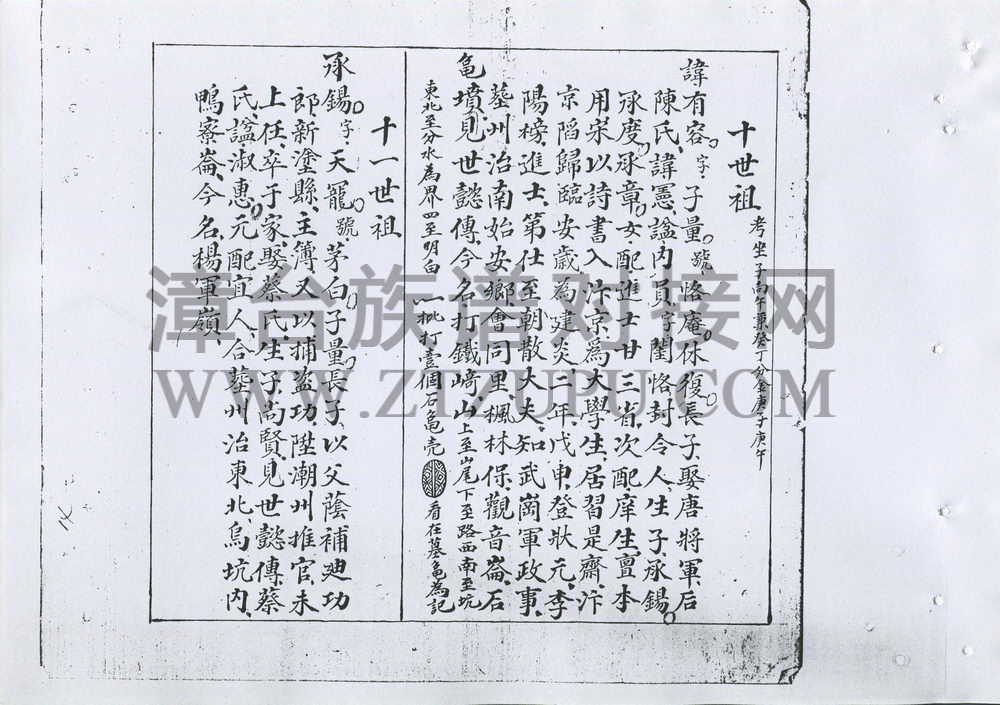 十世祖 考坐子向午兼癸丁分金庚子庚午
諱有容字子量號恪庵休復長子娶唐將軍后
陳氏諱憲謚內員字閨恪封令人生子承錫
承度承章女配進士廿三省次配庠生亶本
用宋以詩書入汴京為大學生居習是齋汴
京陷歸臨安歲為建炎二年戊申登狀元李
陽榜進士第仕至朝散大夫知武崗軍政事
墓州治南始安鄉會同里楓林保觀音崙石
龜墳見世懿傳今名打鐵崎山上至山尾下至路西南至坑
東北至分水為界四至明白一批打壹個石龜壳看在墓龜為記
十一世祖
承錫字天寵號茅白子量長子以父蔭補迪功
郎新塗縣主簿又以捕盜功陞潮州推官未
上任卒于家娶蔡氏生子尚賢見世懿傳蔡
氏謚淑惠元配宜人合墓州治東北烏坑內
鴨寮崙今名楊軍嶺
漳台族谱对接网
WWW.ZTZUPU.COM